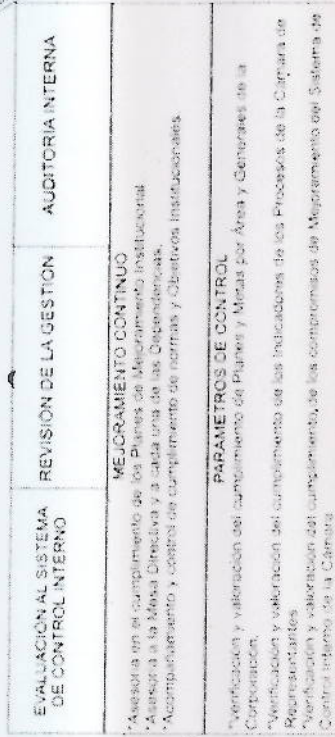 EVALUACION AL SISTEMA
DE CONTROL INTERNO
REVISIÓN DE LA GESTION
AUDITORIA INTERNA
MEJORAMIENTO CONTINUO
*Asesoria en el cumplimiento de los Planes de Mejoramiento Institucional.
*Asesoria a la Mesa Directiva y a cada una de las Dependencias.
*Acompañamiento y control de cumplimiento de normas y Objetivos Institucionales.
PARAMETROS DE CONTROL
*Verificación y valoración del cumplimiento de Planes y Metas por Área y Generales de la
Corporación.
*Verificación y valoración del cumplimiento de los Indicadores de los Procesos de la Cámara de
Representantes
*Verificación y valoración del cumplimiento, de los compromisos de Mejoramiento del Sistema de
Control Interno de la Cámara